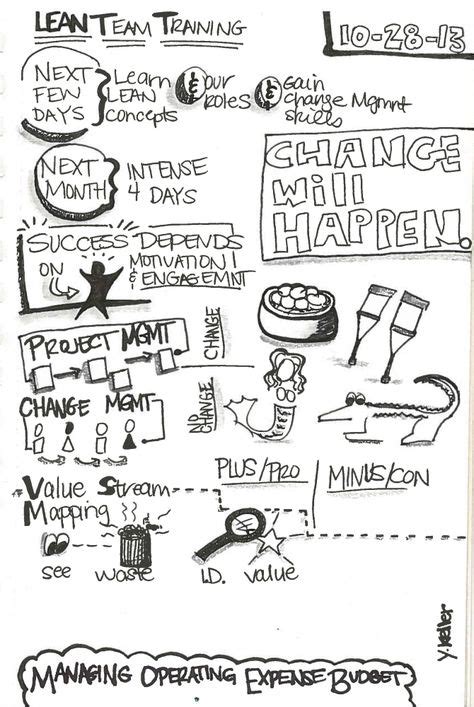 LEAN TEAM TRAINING
10-28-13
NEXT
FEW
DAYS
Learn
LEAN
concepts
&
our
roles
&
Gain
change Mgmnt
skills
NEXT
MONTH
INTENSE
4 DAYS
CHANGE
will
HAPPEN.
SUCCESS DEPENDS
ON
MOTIVATION!
& ENGAGEMNT
PROJECT MGMT
CHANGE MGMT
CHANGE
NO
CHANGE
PLUS/PRO
MINUS/CON
Value Stream
Mapping
see
waste
I.D.
value
Y. Keller
MANAGING OPERATING EXPENSE BUDGET